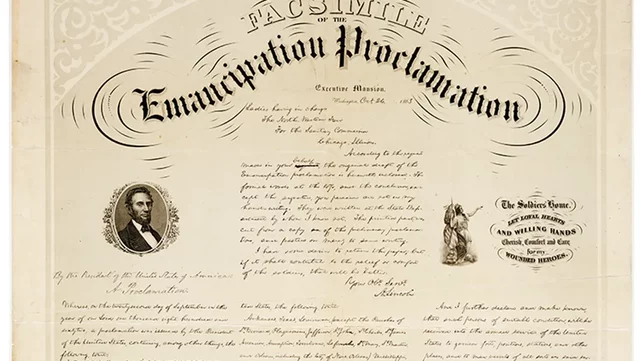 FACSIMILE
OF THE
Emancipation Proclamation
Executive Mansion,
Washington, Oct 26, 1863
Ladies having in charge
The North Western Fair
For the Sanitary Commission
Chicago, Illinois.
According to the request
made in your behalf, the original draft of the
Emancipation proclamation is herewith enclosed. The
formal words at the top, and the conclusion, ex-
cept the signature, you perceive, are not in my
handwriting. They were written at the State Depart-
ment by whom I know not. The printed part was
cut from a copy of the preliminary proclama-
tion, and pasted on merely to save writing.
I had some desire to retain the paper; but
if it shall contribute to the relief or comfort
of the soldiers, that will be better
Your Obt. Servt.
A. Lincoln
The Soldiers' Home.
LET LOYAL HEARTS
AND WILLING HANDS
Cherish, Comfort and Care,
for my
WOUNDED HEROES.
By the President of the United States of America:
A Proclamation.
Whereas, on the twenty-second day of September, in the
year of our Lord one thousand eight hundred and
sixty-two, a proclamation was issued by the President
of the United States, containing, among other things, the
following, to wit:
ties, to wit:
Arkansas, Texas, Louisiana, except the Parishes of
And I further declare and make known,
that such persons of suitable condition, will be
received into the armed service of the United
States to garrison forts, positions, stations, and other
places, and to man vessels of all sorts in said